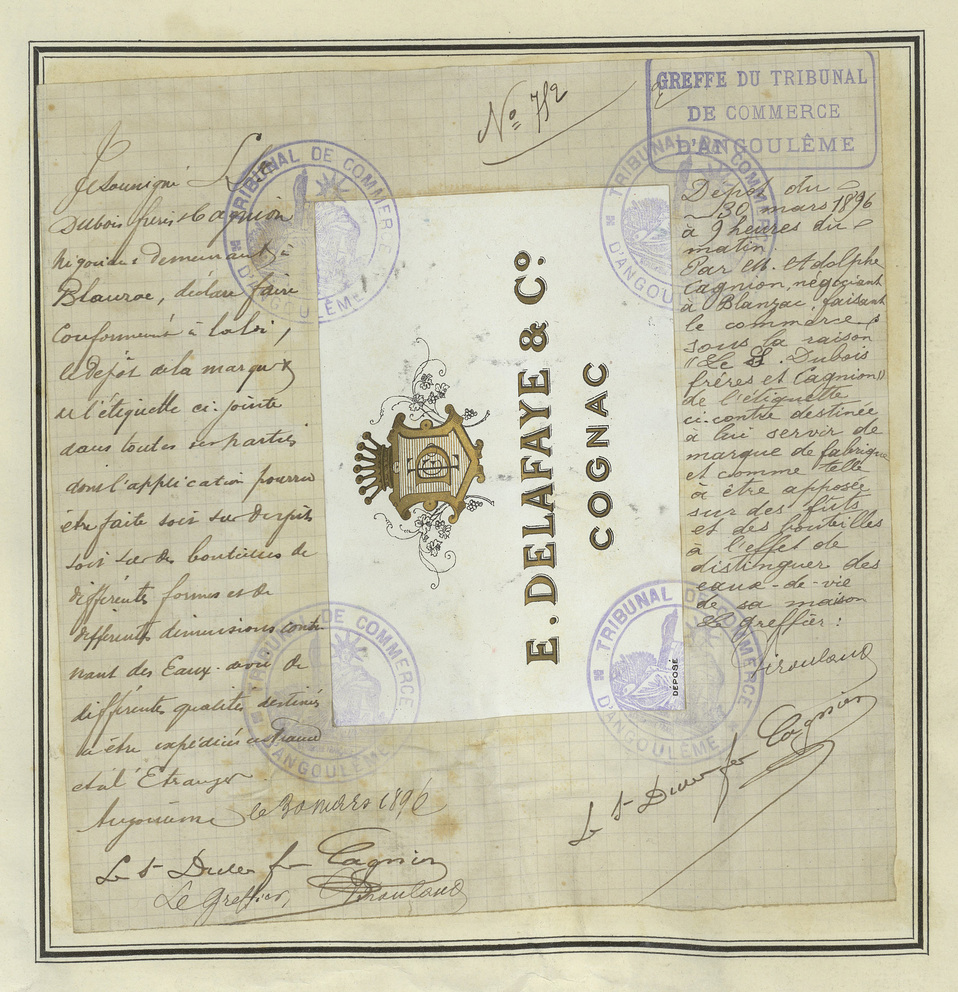 No 752
GREFFE DU TRIBUNAL
DE COMMERCE
D'ANGOULÊME
TRIBUNAL DE COMMERCE
D'ANGOULÊME
TRIBUNAL DE COMMERCE
D'ANGOULÊME
Je soussigné
Dubois frères & Cagnion
négociant demeurant à
Blanzac, déclare faire
conformément à la loi,
le dépôt de la marque
de l'étiquette ci-jointe
dans toutes ses parties
dont l'application pourra
être faite soit sur
soit sur des bouteilles de
différentes formes et de
différentes dimensions conte
nant des Eaux-de-vie de
différentes qualités destinées
à être expédiées en France
et à l'Etranger
Angoulême le 30 mars 1896
Le Cagnion
Le Greffier,
E. DELAFAYE & Co.
COGNAC
DÉPOSÉ
Dépôt du
30 mars 1896
à 9 heures du
matin
Par M. Adolphe
Cagnion, négociant
à Blanzac, faisant
le commerce
sous la raison
"Le S. Dubois
frères et Cagnion"
de l'étiquette
ci-contre destinée
à lui servir de
marque de fabrique
et comme telle
à être apposée
sur des fûts
et des bouteilles
à l'effet de
distinguer des
eaux-de-vie
de sa maison
Le greffier:
Cagnion
TRIBUNAL DE COMMERCE
D'ANGOULÊME
TRIBUNAL DE COMMERCE
D'ANGOULÊME